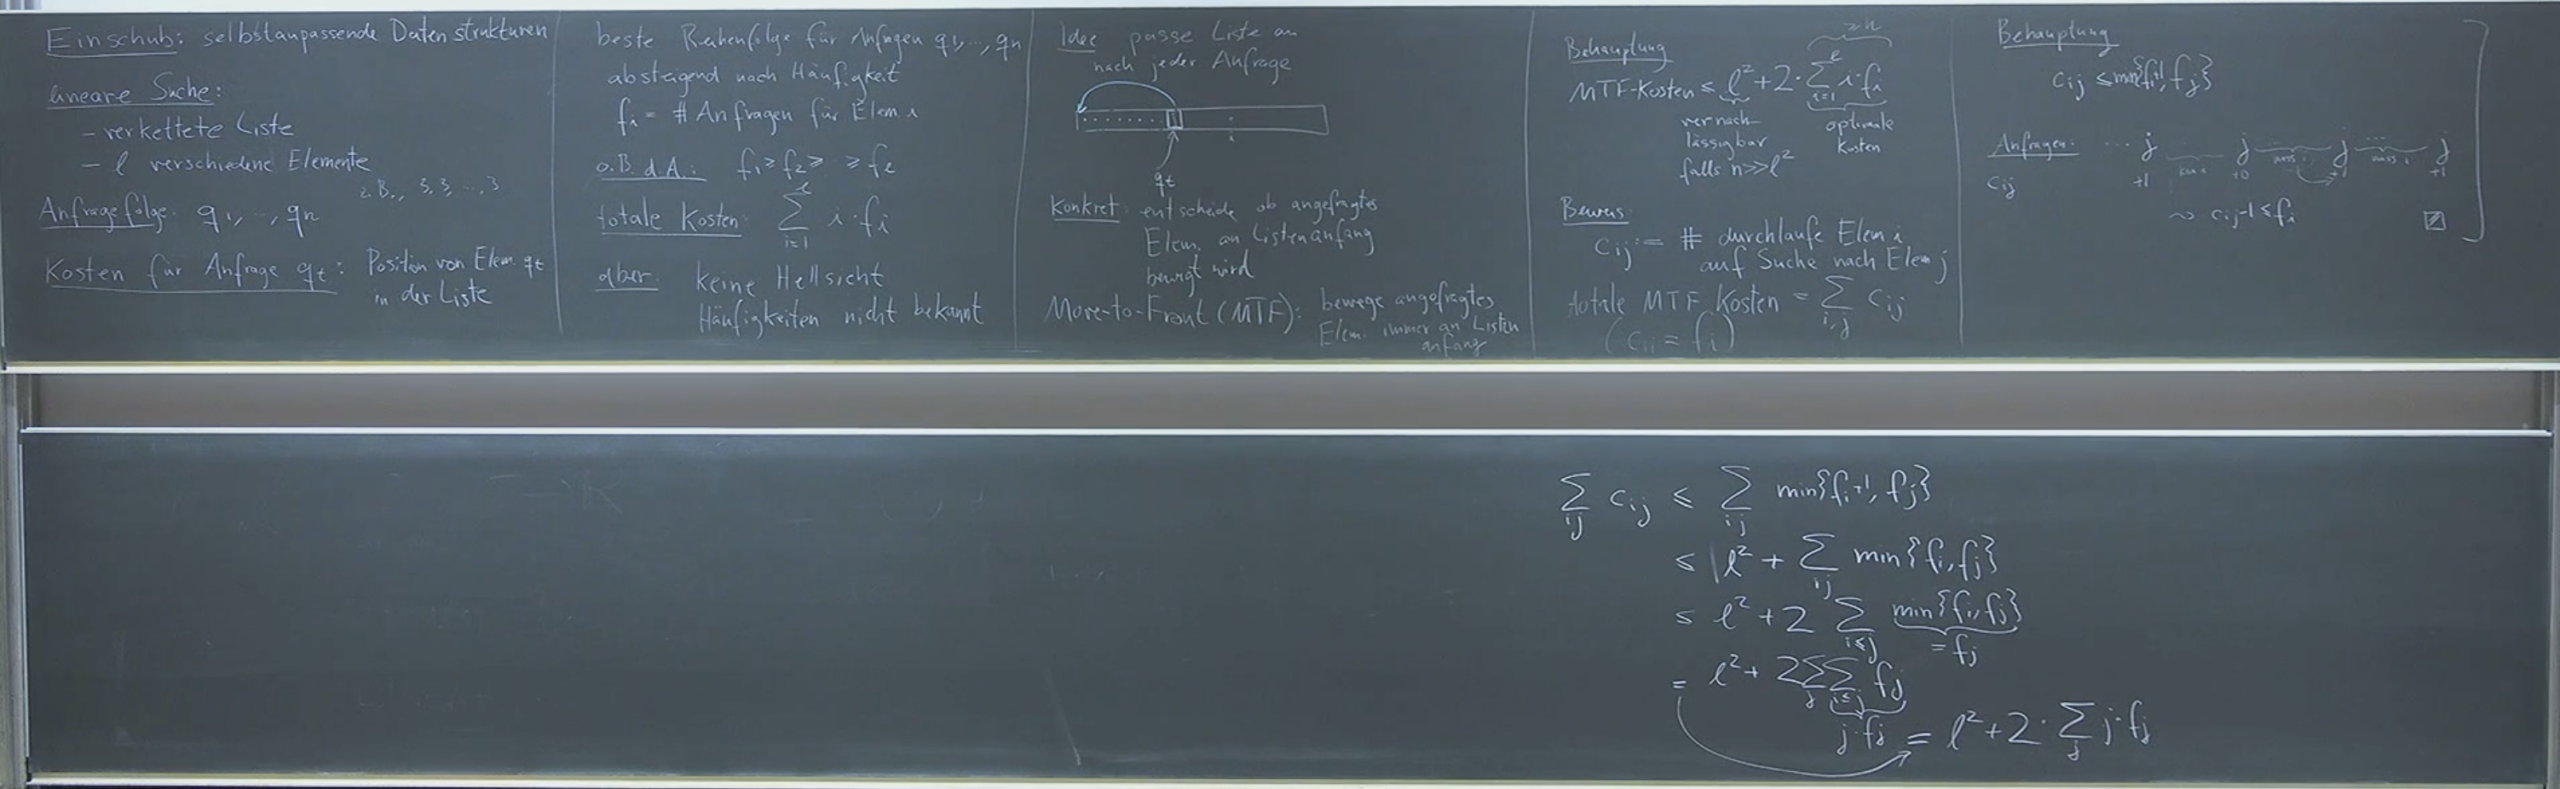 Einschub: selbstanpassende Datenstrukturen
lineare Suche:
- verkettete Liste
- l verschiedene Elemente
z.B., 3,3,...,3
Anfragefolge: q₁, ..., qₙ
Kosten für Anfrage qₜ: Position von Elem. qₜ
in der Liste
beste Reihenfolge für Anfragen q₁, ..., qₙ
absteigend nach Häufigkeit
fᵢ = # Anfragen für Elem i
o.B.d.A.: f₁ ≥ f₂ ≥ ≥ fₗ
totale Kosten: ∑_{i=1}^{l} i·fᵢ
aber: keine Hellsicht
Häufigkeiten nicht bekannt
Idee passe Liste an
nach jeder Anfrage
i
qₜ
Konkret: entscheide ob angefragtes
Elem. an Listenanfang
bewegt wird
Move-to-Front (MTF): bewege angefragtes
Elem. immer an Listen
anfang
Behauptung
≥n
MTF-Kosten ≤ l² + 2·∑_{i=1}^{l} i·fᵢ
vernach- optimale
lässigbar Kosten
falls n>>l²
Beweis:
cᵢⱼ := # durchläufe Elem i
auf Suche nach Elem j
totale MTF Kosten = ∑_{i,j} cᵢⱼ
(cᵢᵢ = fᵢ)
Behauptung
cᵢⱼ ≤ min{fᵢ+1, fⱼ}
Anfragen: ... j ... j ... j ... j
cᵢⱼ +1 +0 +1 +1
⇝ cᵢⱼ-1 ≤ fᵢ
∑_{ij} cᵢⱼ ≤ ∑_{ij} min{fᵢ+1, fⱼ}
≤ l² + ∑_{ij} min{fᵢ, fⱼ}
≤ l² + 2 ∑_{i≤j} min{fᵢ, fⱼ}
= fⱼ
= l² + 2∑_{j}∑_{i≤j} fⱼ
j·fⱼ = l² + 2·∑_{j} j·fⱼ